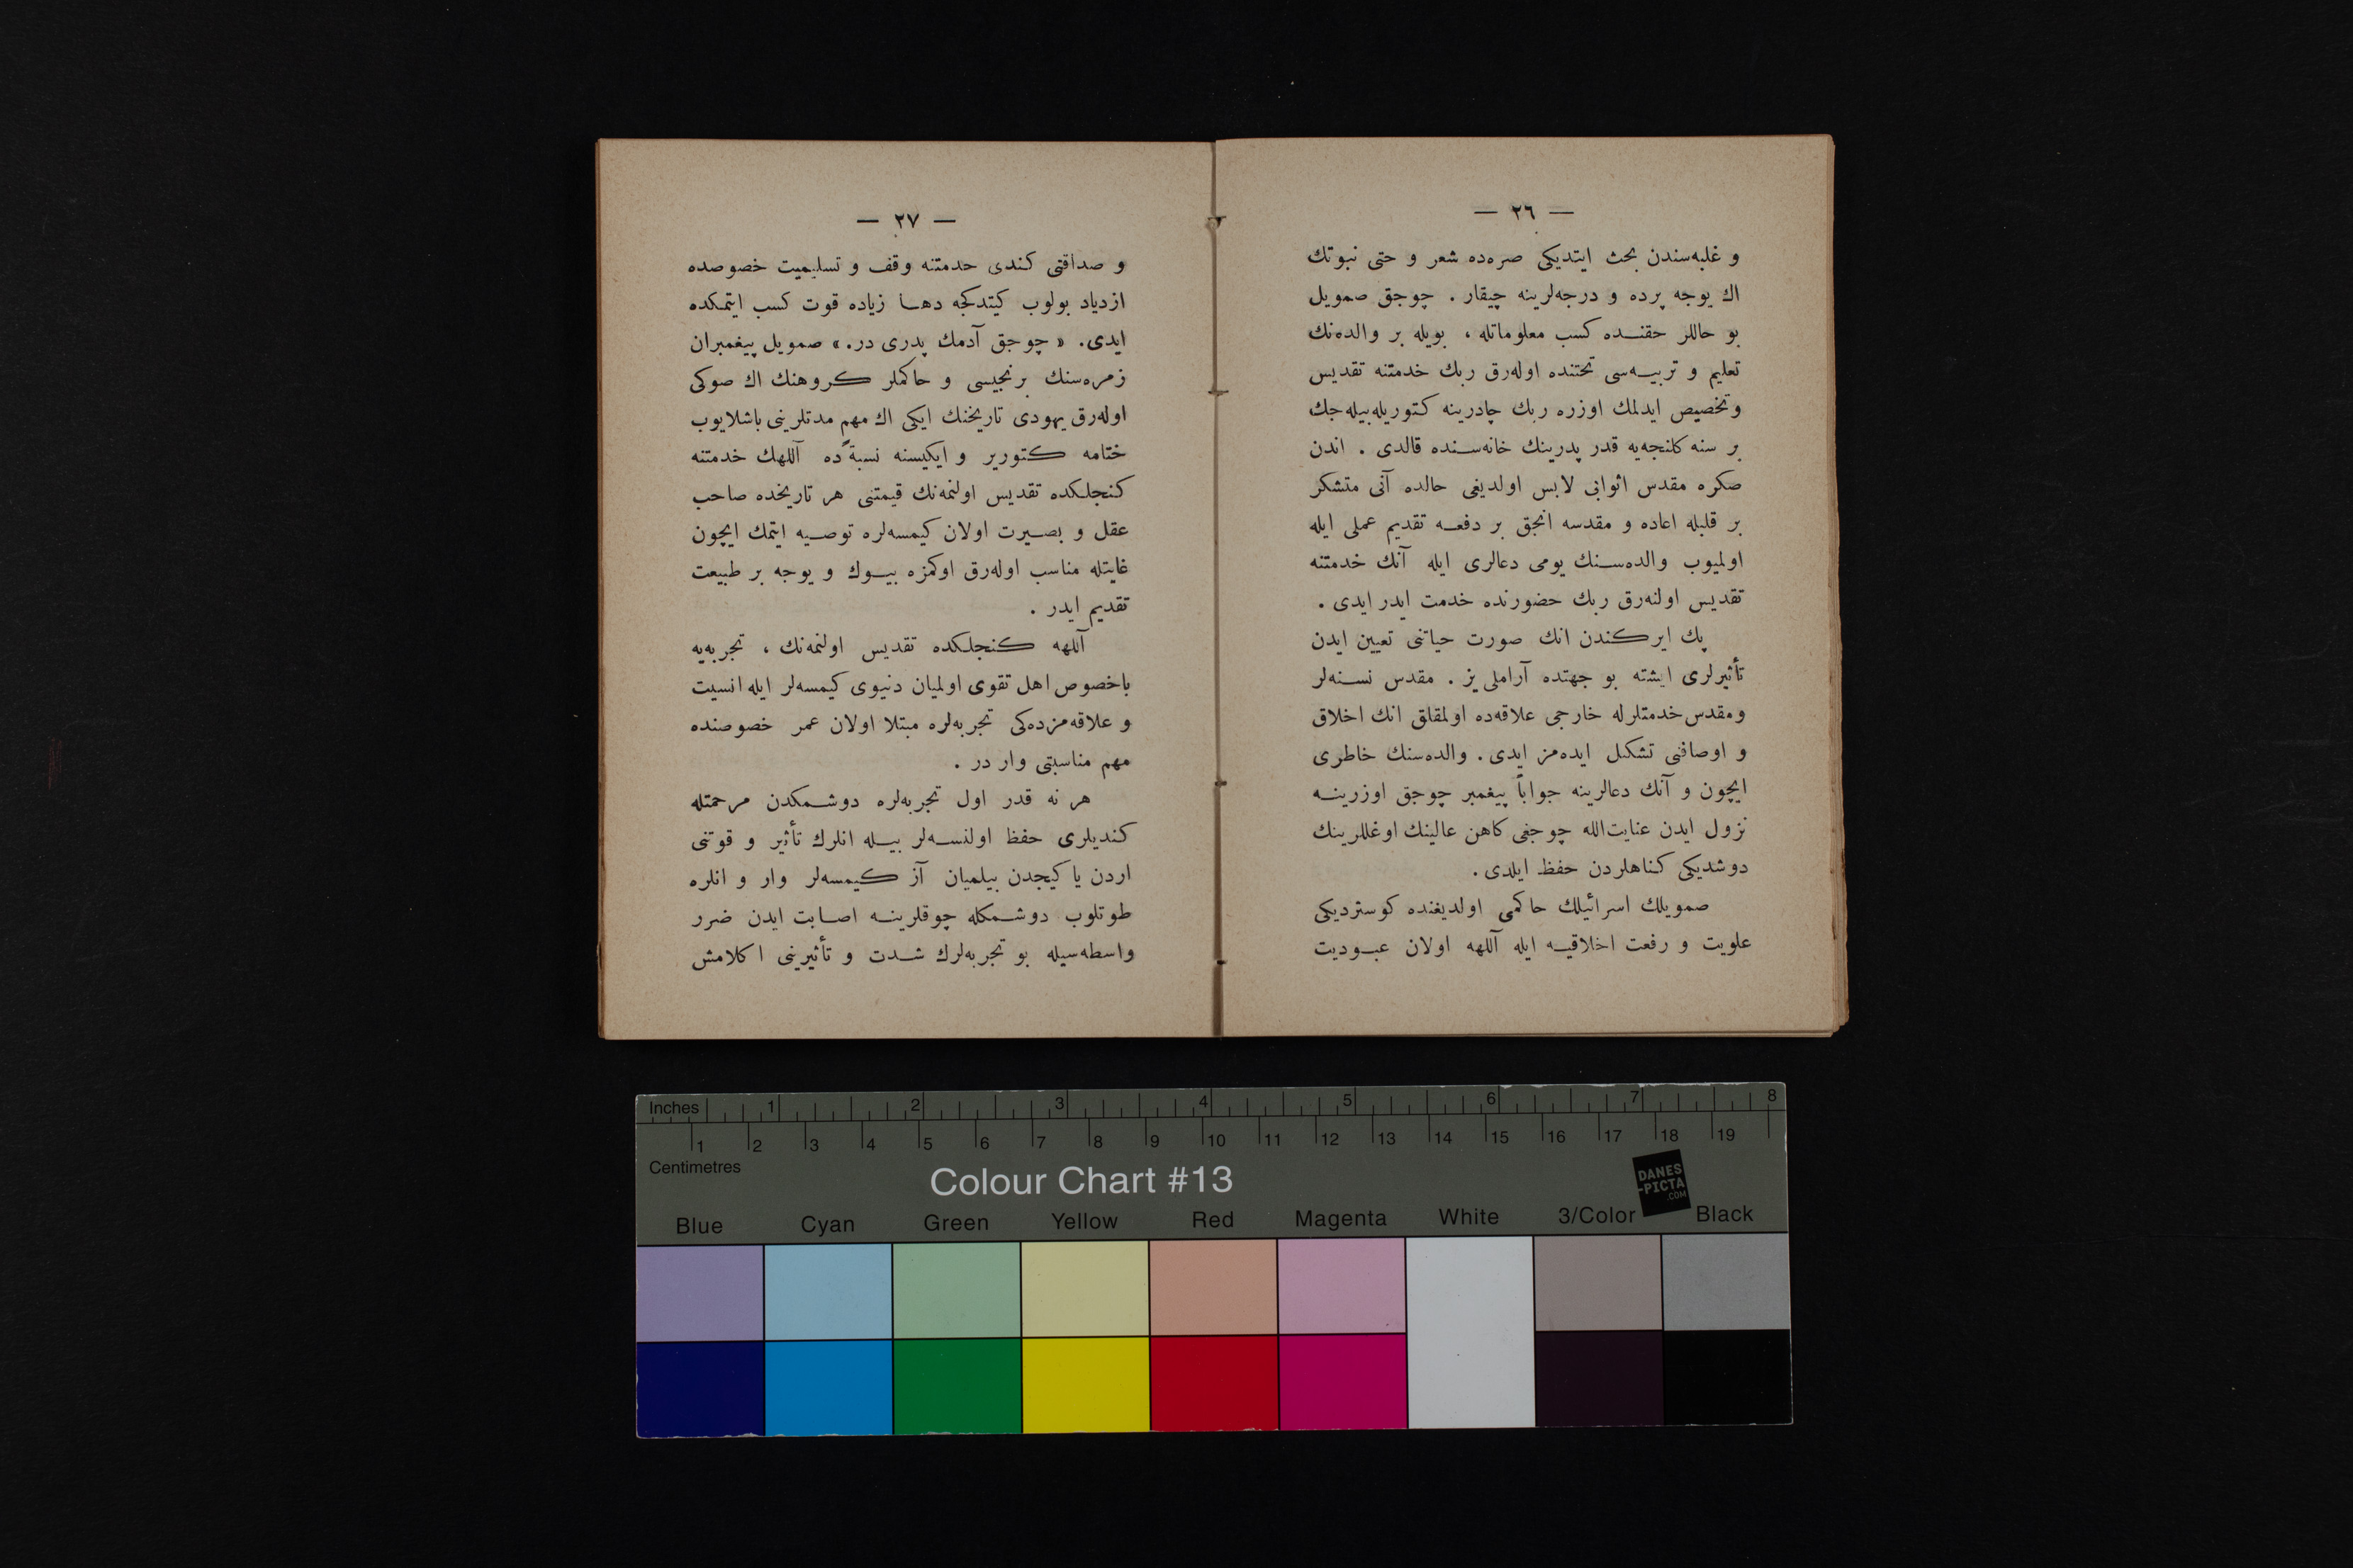 — ٢٦ —
و غلبه‌سندن بحث ایتدیکی صره‌ده شعر و حتی نبوتك
اك یوجه پرده و درجه‌لرینه چیقار . چوجق صمویل
بو حاللر حقنـده کسب معلوماتله ، بویله بر والده‌نك
تعلیم و تربیـه‌سی تحتنده اوله‌رق ربك خدمتنه تقدیس
وتخصیص ایدلمك اوزره ربك چادرینه کتوریله‌بیله‌جك
بر سنه کلنجه‌یه قدر پدرینك خانه‌سـنده قالدی . اندن
صکره مقدس اثوابی لابس اولدیغی حالده آنی متشکر
بر قلبله اعاده و مقدسه انجق بر دفعـه تقدیم عملی ایله
اولمیوب والده‌سـنك یومی دعالری ایله آنك خدمتنه
تقدیس اولنه‌رق ربك حضورنده خدمت ایدر ایدی .
پك ایرکندن انك صورت حیاتنی تعیین ایدن
تأثیرلری ایشته بو جهتده آراملی‌یز . مقدس نسـنه‌لر
ومقدس خدمتلرله خارجی علاقه‌ده اولمقلق انك اخلاق
و اوصافنی تشکیل ایده‌مز ایدی . والده‌سنك خاطری
ایچون و آنك دعالرینه جواباً پیغمبر چوجق اوزرینـه
نزول ایدن عنایت‌الله چوجغی کاهن عالینك اوغللرینك
دوشدیکی کناهلردن حفظ ایلدی .
صمویلك اسرائیلك حاکمی اولدیغنده کوستردیکی
علویت و رفعت اخلاقیـه ایله آللهه اولان عبـودیت
— ٢٧ —
و صداقتی کندی خدمتنه وقف و تسلیمیت خصوصده
ازدیاد بولوب کیتدکجه دهـا زیاده قوت کسب ایتمکده
ایدی . « چوجق آدمك پدری در . » صمویل پیغمبران
زمره‌سنك برنجیسی و حاکملر کروهنك اك صوکی
اوله‌رق یهودی تاریخنك ایکی اك مهم مدتلرینی باشلایوب
ختامه کتوریر و ایکیسنه نسبةً ده آللهك خدمتنه
کنجلکده تقدیس اولنمه‌نك قیمتنی هر تاریخده صاحب
عقل و بصـیرت اولان کیمسه‌لره توصـیه ایتمك ایچون
غایتله مناسب اوله‌رق اوکمزه بیـوك و یوجه بر طبیعت
تقدیم ایدر .
آللهه کنجلکده تقدیس اولنمه‌نك ، تجربه‌یه
باخصوص اهل تقوی اولمیان دنیوی کیمسه‌لر ایله انسیت
و علاقه‌مزده‌کی تجربه‌لره مبتلا اولان عمر خصوصنده
مهم مناسبتی وار در .
هر نه قدر اول تجربه‌لره دوشـمکدن مرحمتله
کندیلری حفظ اولنسـه‌لر بیـله انلرك تأثیر و قوتنی
اردن یا کیجدن بیلمیان آز کیمسه‌لر وار و انلره
طوتلوب دوشـمکله چوقلرینـه اصـابت ایدن ضرر
واسطه‌سیله بو تجربه‌لرك شـدت و تأثیرینی اکلامش
Inches 1 2 3 4 5 6 7 8
1 2 3 4 5 6 7 8 9 10 11 12 13 14 15 16 17 18 19
Centimetres
Colour Chart #13
DANES
-PICTA
.COM
Blue Cyan Green Yellow Red Magenta White 3/Color Black